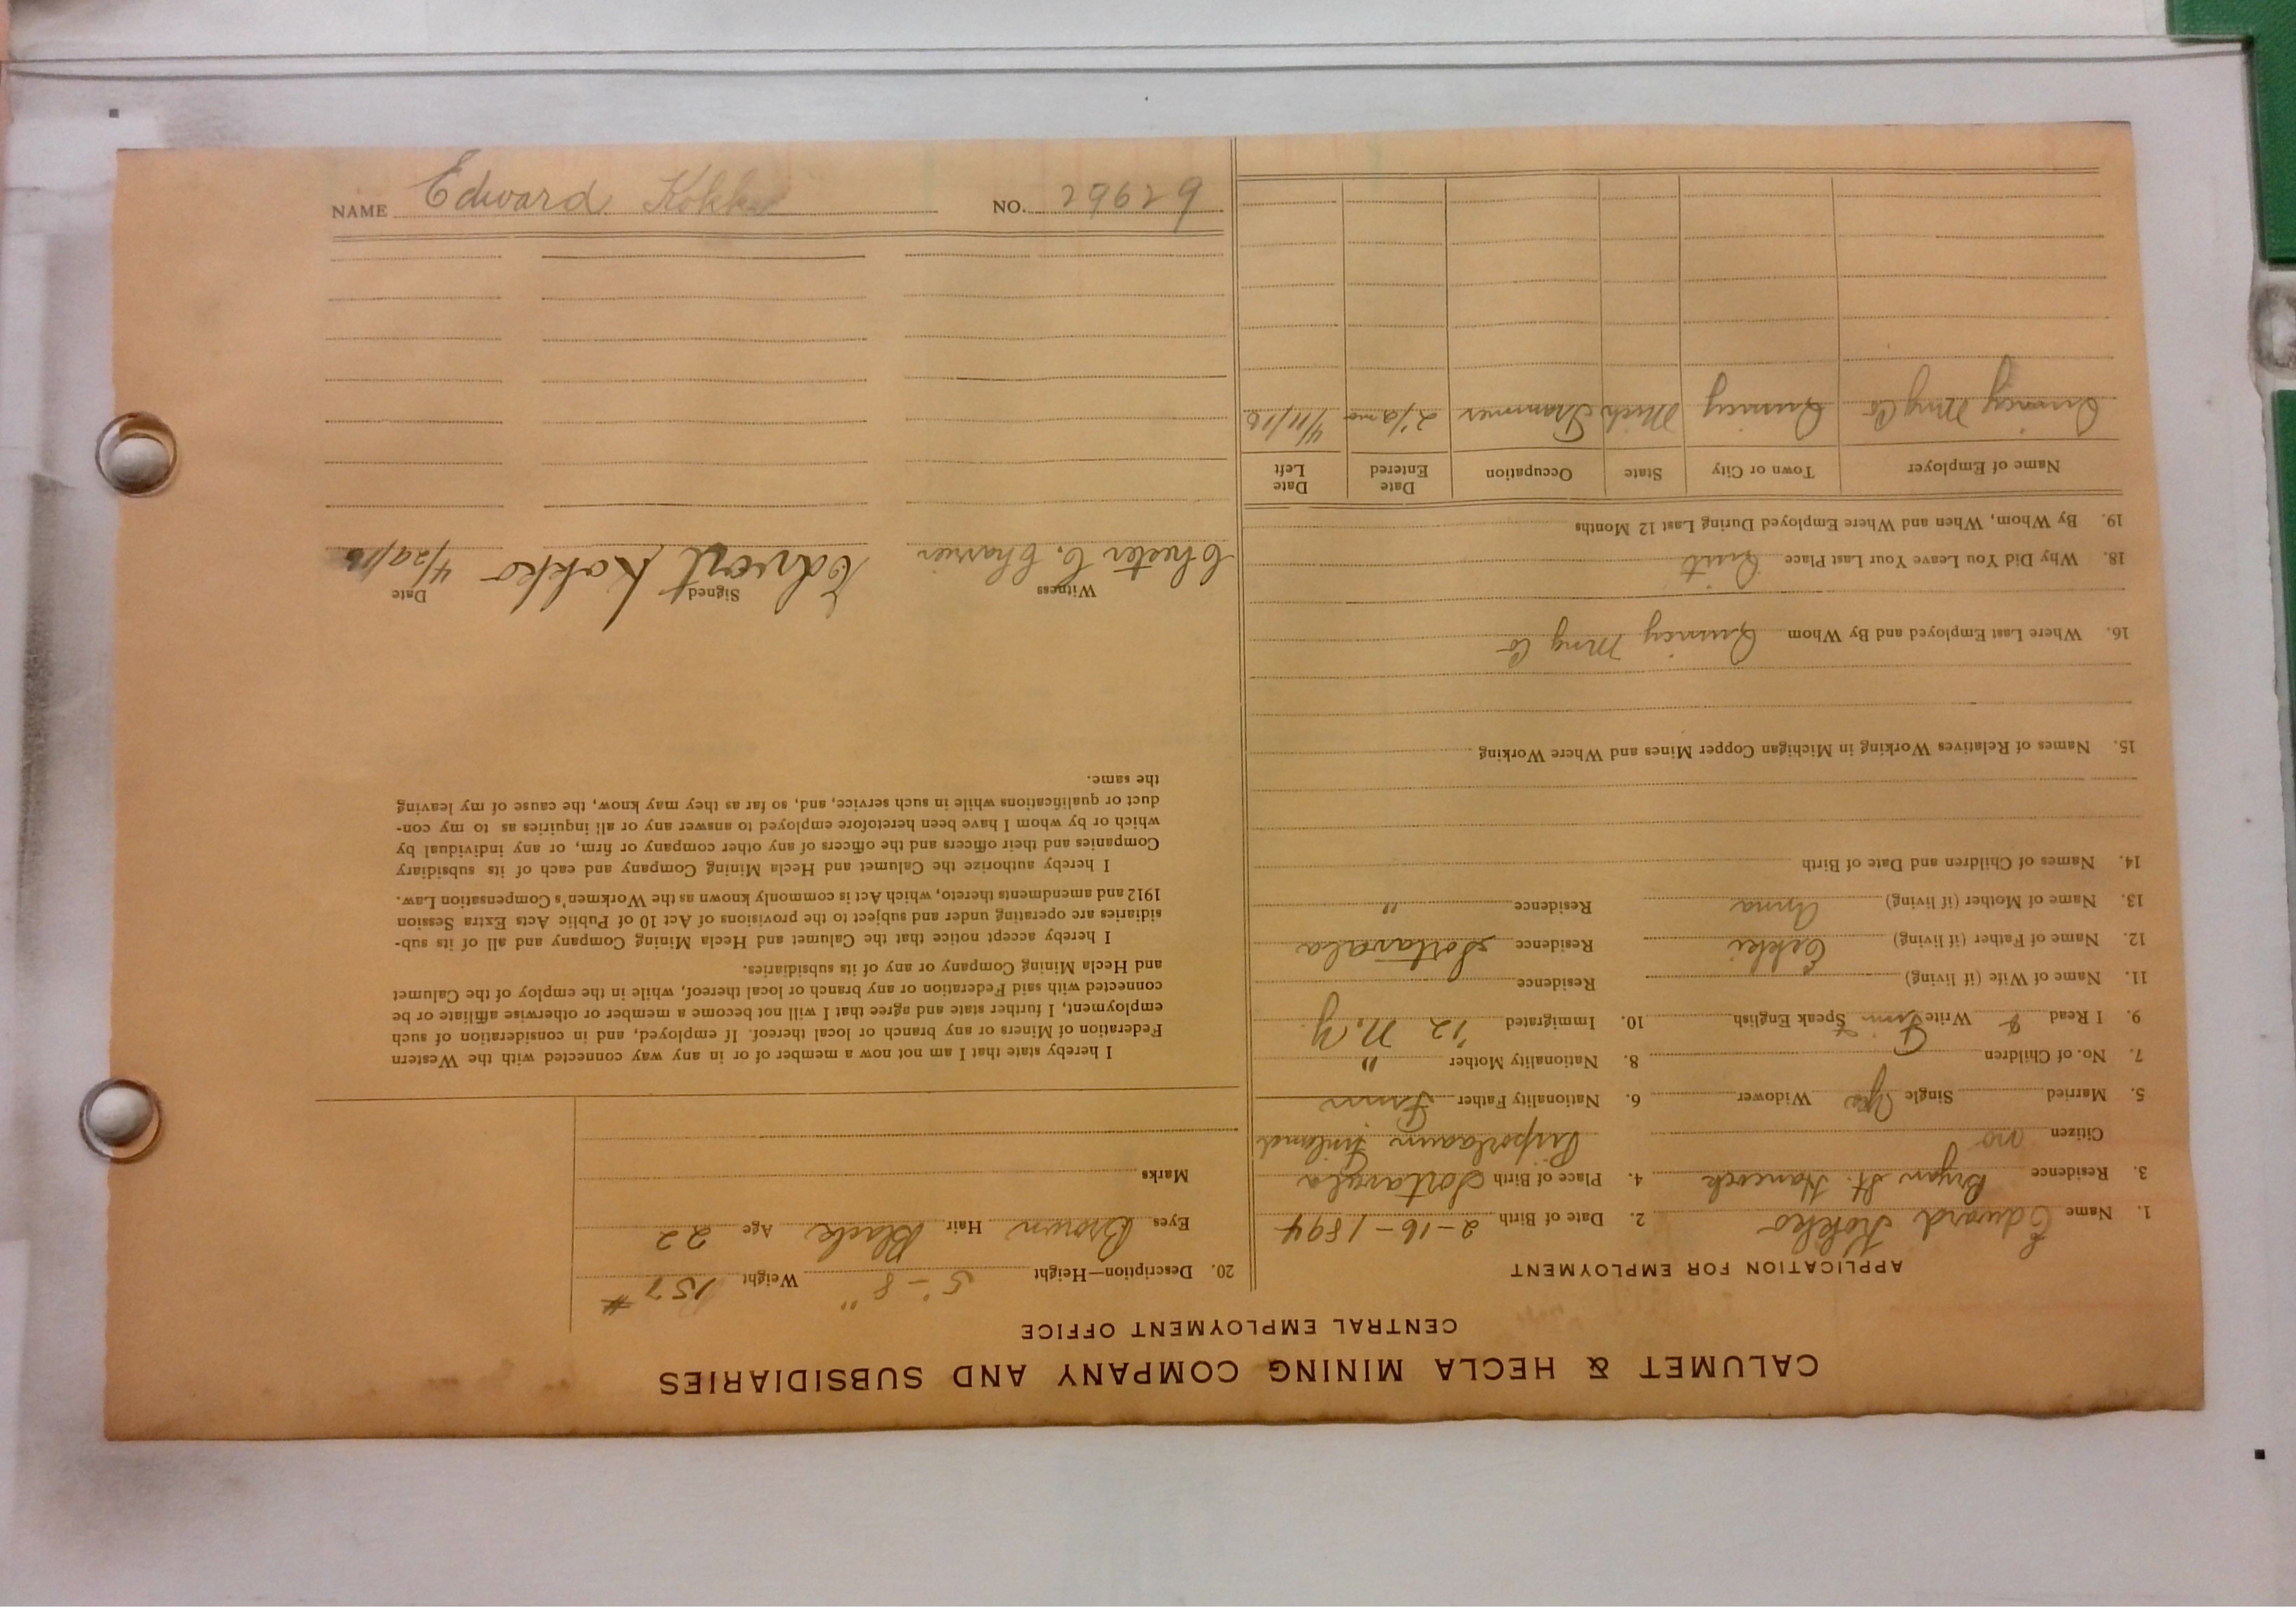 CALUMET & HECLA MINING COMPANY AND SUBSIDIARIES
CENTRAL EMPLOYMENT OFFICE
APPLICATION FOR EMPLOYMENT
1. Name Edward Kokko 2. Date of Birth 2-16-1894
3. Residence Bryan St. Hancock 4. Place of Birth Sortavala
Citizen no Finland
5. Married Single yes Widower 6. Nationality Father Finn
7. No. of Children 8. Nationality Mother "
9. I Read & Write Finn Speak English 10. Immigrated '12 N.Y
11. Name of Wife (if living) Residence
12. Name of Father (if living) Erkki Residence Sortavala
13. Name of Mother (if living) Anna Residence "
14. Names of Children and Date of Birth
15. Names of Relatives Working in Michigan Copper Mines and Where Working
16. Where Last Employed and By Whom Quincy Mng Co
18. Why Did You Leave Your Last Place Quit
19. By Whom, When and Where Employed During Last 12 Months
Name of Employer Town or City State Occupation Date Entered Date Left
Quincy Mng Co Quincy Mich Trammer 2 1/2 mo 4/11/16
20. Description—Height 5'-8" Weight 157 #
Eyes Brown Hair Black Age 22
Marks
I hereby state that I am not now a member of or in any way connected with the Western
Federation of Miners or any branch or local thereof. If employed, and in consideration of such
employment, I further state and agree that I will not become a member or otherwise affiliate or be
connected with said Federation or any branch or local thereof, while in the employ of the Calumet
and Hecla Mining Company or any of its subsidiaries.
I hereby accept notice that the Calumet and Hecla Mining Company and all of its sub-
sidiaries are operating under and subject to the provisions of Act 10 of Public Acts Extra Session
1912 and amendments thereto, which Act is commonly known as the Workmen's Compensation Law.
I hereby authorize the Calumet and Hecla Mining Company and each of its subsidiary
Companies and their officers and the officers of any other company or firm, or any individual by
which or by whom I have been heretofore employed to answer any or all inquiries as to my con-
duct or qualifications while in such service, and, so far as they may know, the cause of my leaving
the same.
Witness Signed Date
Chester C. Edvart Kokko 4/20/16
NAME Edward Kokko NO. 29629